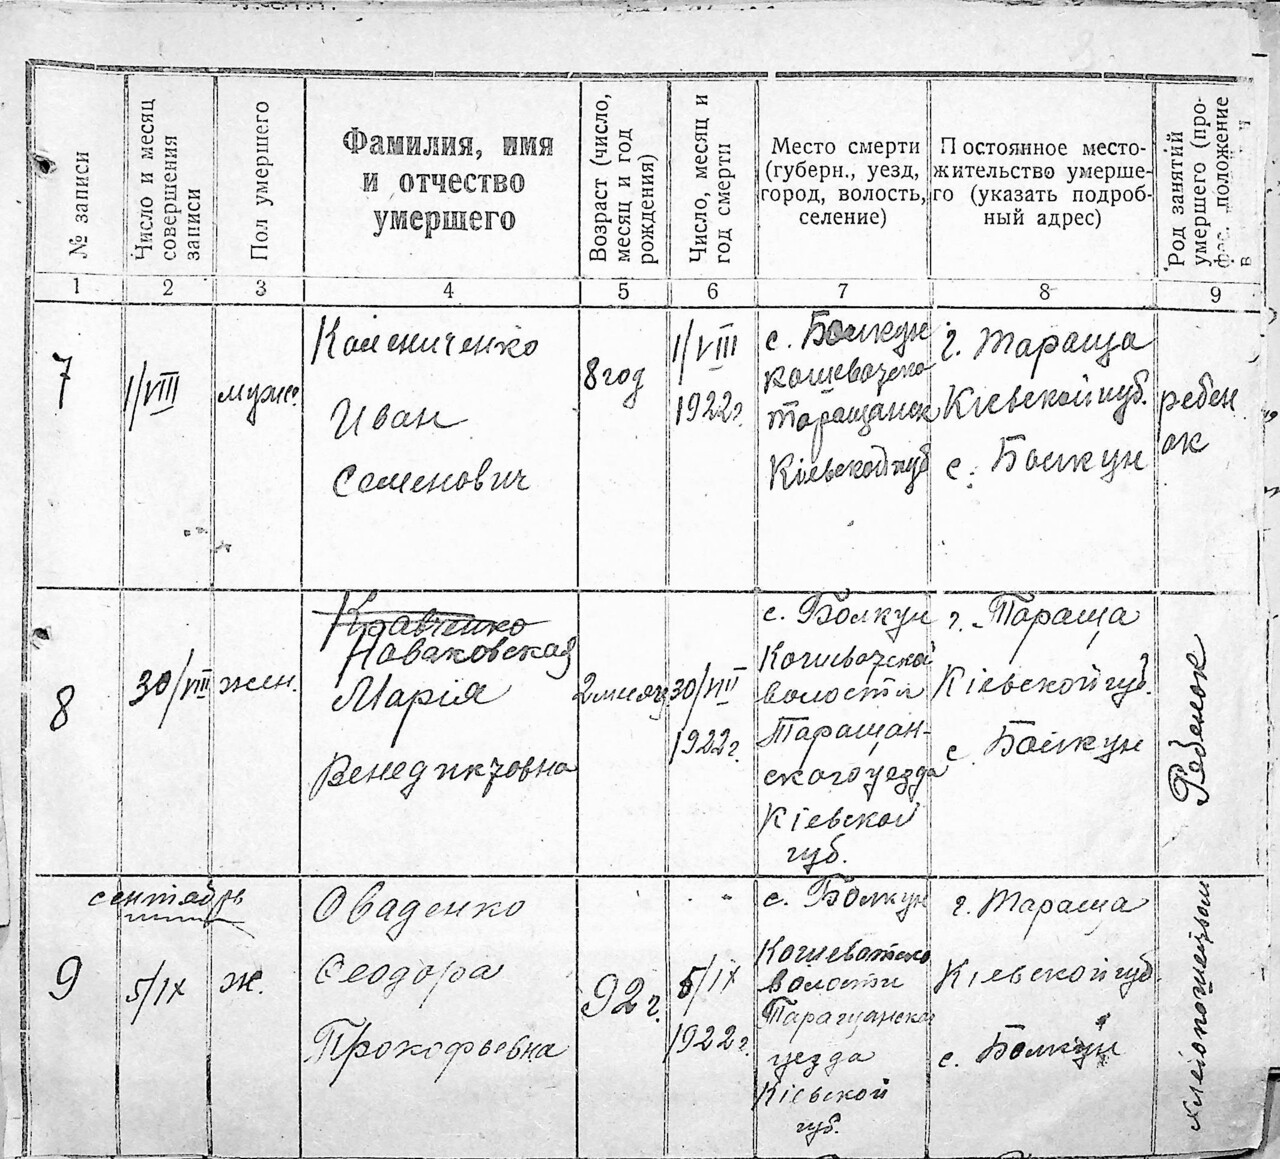 № записи
Число и месяц совершения записи
Пол умершего
Фамилия, имя
и отчество
умершего
Возраст (число, месяц и год рождения)
Число, месяц и год смерти
Место смерти
(губерн., уезд,
город, волость,
селение)
Постоянное место-
жительство умерше-
го (указать подроб-
ный адрес)
Род занятий
умершего (про-
фес. положение
в
1 2 3 4 5 6 7 8 9
7
1/VIII
мужс.
Коленниченко
Иван
Семенович
8 год
1/VIII
1922г.
с. Бошкун
кошевозско
таращанск
Кіевской губ
г. Тараща
Кіевской губ.
с. Бошкун
ребен
ок
8
30/VIII
жен.
Кравченко
Новаковская
Марія
Венедиктовна
2 месяц
30/VIII
1922г.
с. Бошкун
Кошевозской
волости
Таращан-
ского уезда
Кіевской
губ.
г. Тараща
Кіевской губ.
с. Бошкун
Ребенок
сентябрь
9
5/IX
ж.
Оваденко
Феодора
Прокофьевна
92 г.
5/IX
1922г.
с. Бошкун
Кошеватско
волости
Таращанског
уезда
Кіевской
губ.
г. Тараща
Кіевской губ.
с. Бошкун